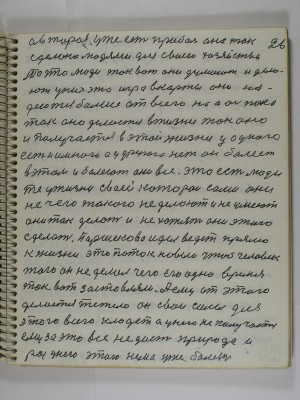 авторая, уже есть прибоя она так 26
сделано людями для своего хозяйства
То то люди так вот они думают и дела-
ют ужга это игра в карты они на-
деются больше от всего но а он пока
так оно делается в жизни так оно
и получается в этой жизни у одного
есть и много а у другого нет он болеет
в этом и болеют они все. Это есть люди
те у жизни своей которой сами они
не чего такого не делают и не имеют
они так делать и не хотят они этого
сделать. Паршекова идея ведет прямо
к жизни это поток нового у ней человек
того он не делал чего его одно время
так вот заставляли. Ему от этого
делается тепло он свои силы для
этого всего кладет а у него не получается
ему за это все не дает природа и
раз у него этого нема уже болеет